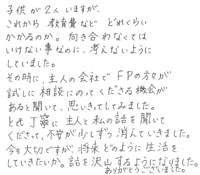 子供が2人いますが、
これから 教育費など どれくらい
かかるのか。向き合わなくては
いけない事なのに、考えないように
していました。
その時に、主人の会社で FPの方が
試しに 相談にのってくださる機会が
あると聞いて、思いきってしてみました。
とても丁寧に 主人と私の話を聞いて
くださって、不安が少しずつ 消えていきました。
今も大切ですが、将来どのように 生活を
していきたいか。話を沢山するようになりました。
ありがとうございました。